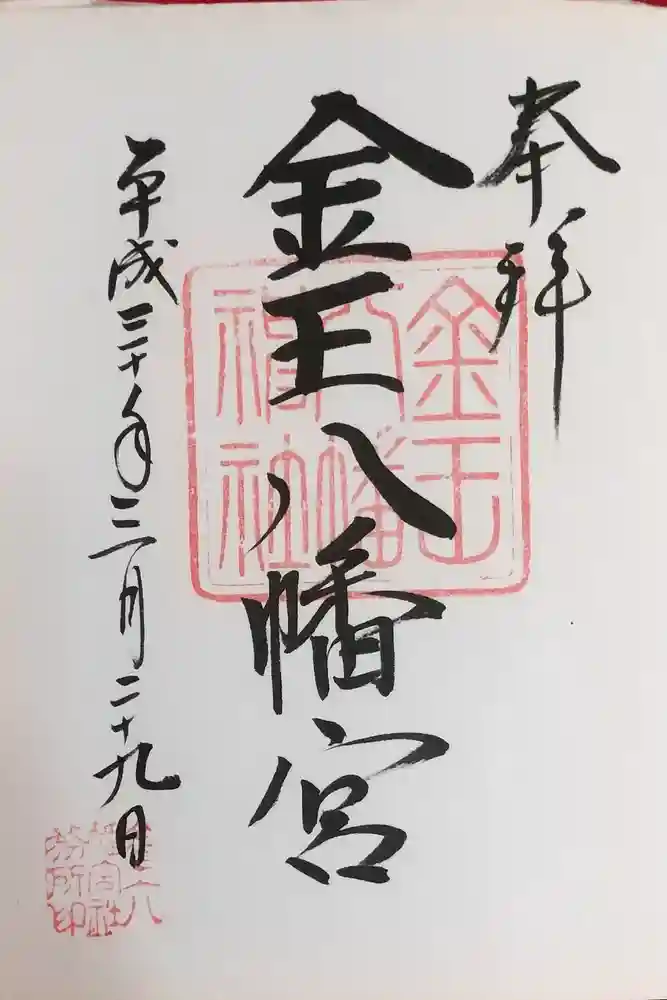 奉拝
金王八幡宮
平成三十年三月二十九日
金王
八幡
神社
務所印